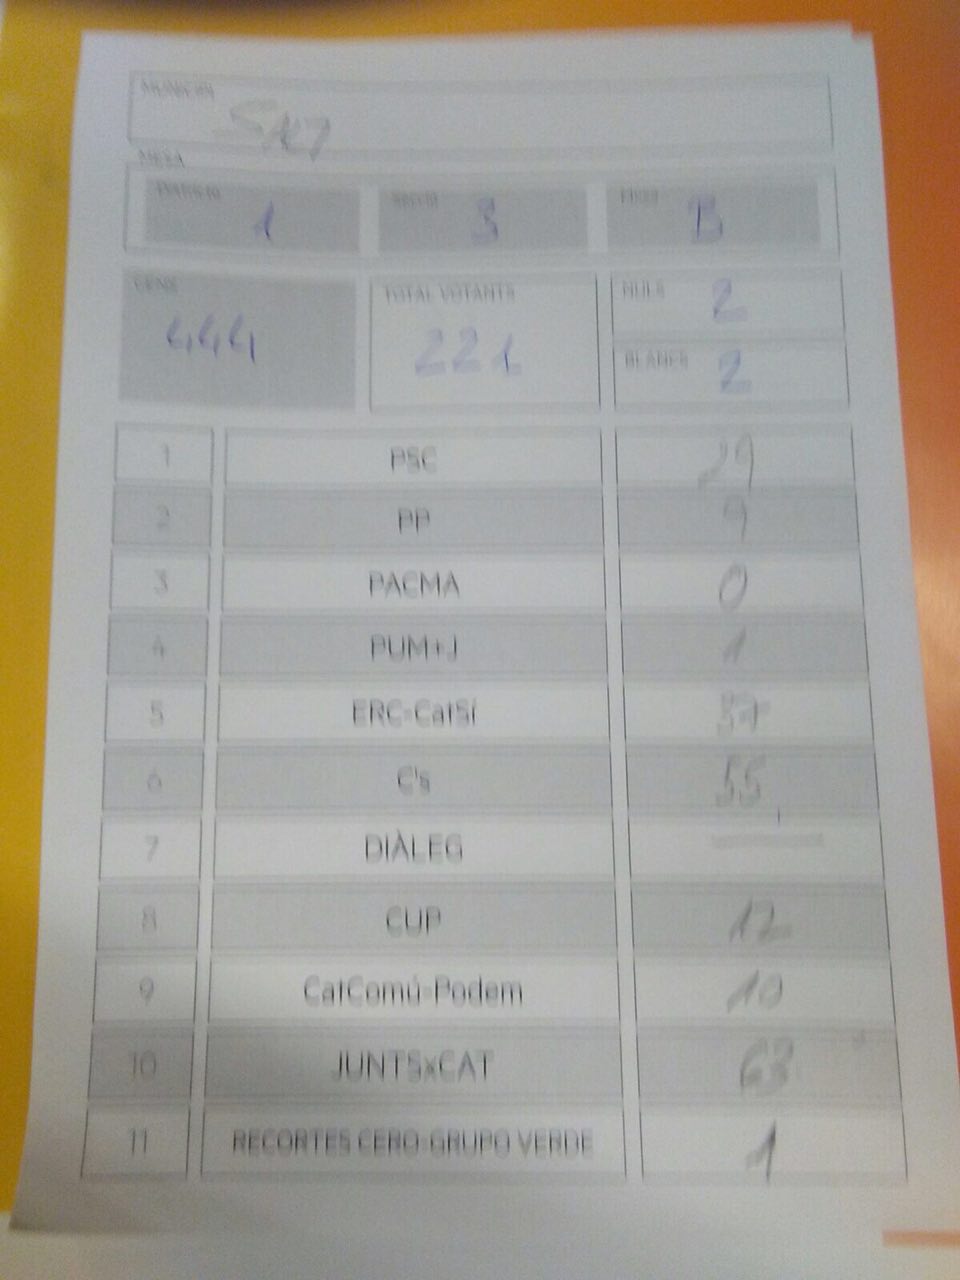 MUNICIPI
SALT
MESA
DISTRICTE 1 SECCIÓ 3 MESA B
CENS 444 TOTAL VOTANTS 221 NULS 2
BLANCS 2
1 PSC 29
2 PP 9
3 PACMA 0
4 PUM+J 1
5 ERC-CatSí 37
6 C's 55
7 DIÀLEG —
8 CUP 12
9 CatComú-Podem 10
10 JUNTSxCAT 63
11 RECORTES CERO-GRUPO VERDE 1